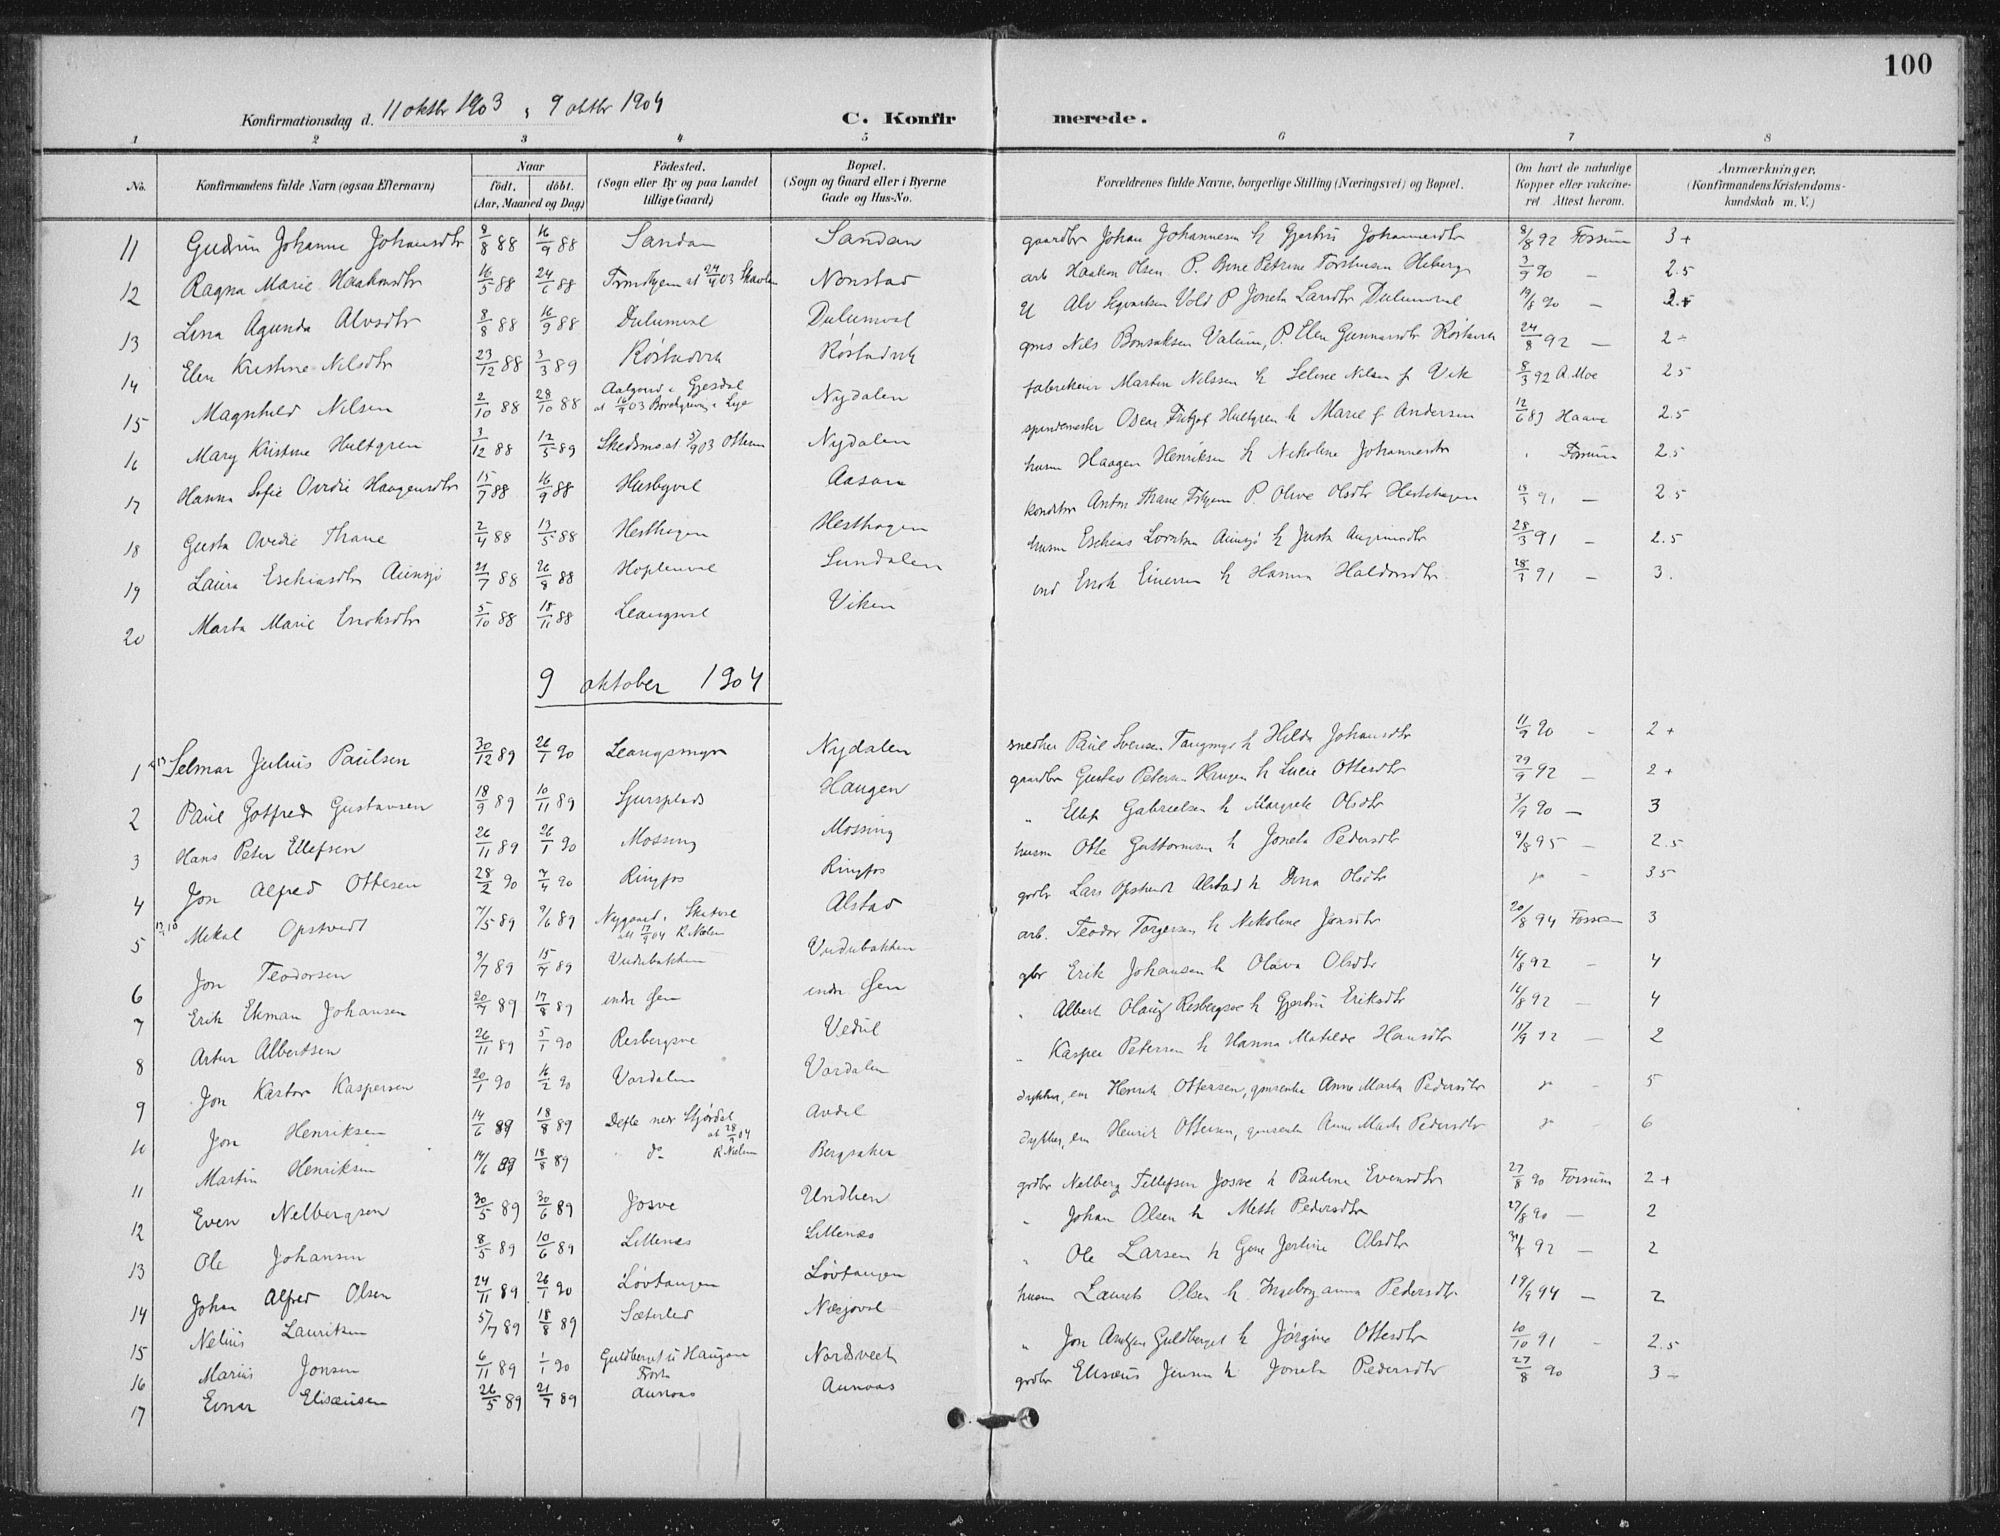 100
Konfirmationsdag d. 11 oktbr 1903, 9 oktbr 1904
C. Konfirmerede.
1 2 3 4 5 6 7 8
No. Konfirmandens fulde Navn (ogsaa Efternavn) Naar født. døbt. (Aar, Maaned og Dag) Fødested. (Sogn eller By og paa Landet tillige Gaard) Bopæl. (Sogn og Gaard eller i Byerne Gade og Hus-No. Forældrenes fulde Navne, borgerlige Stilling (Næringsvei) og Bopæl. Om havt de naturlige Kopper eller vakcineret Attest herom. Anmærkninger, (Konfirmandens Kristendomskundskab m. V.)
11 Gudrun Johanne Johansdtr 8/8 88 16/9 88 Sandan Sandan gaardbr Johan Johannesen h Gjertru Johannesdtr 8/8 92 Forsum 3+
12 Ragna Marie Haakonsdtr 16/5 88 24/6 88 Nonstad arb Haakon Olsen P. 3/9 90 - 2.5
13 Lina Agunda Alvsdtr 8/8 88 16/9 88 Dulumval Dulumval Alv Vold P Joneta Larsdtr Dulumval 19/8 90 -
14 Elen Kristine Nilsdtr 23/12 88 3/3 89 Røstadvik Røstadvik Nils Bonsaksen Valum, P. Elen Gunnarsdtr 24/8 92 - 2-
15 Magnhild Nilsen 2/10 88 28/10 88 Aalgaard i Gjesdal Nydalen fabrikeier Martin Nilssen h Seline Nilsen f Vik 8/3 92 A. Moe 2 5
16 Mary Kristine Hultgren 3/12 88 12/5 89 Skedsmo Nydalen spindemester Oscar Fritjof Hultgren h Marie f Andersen Haave 2.5
17 Hanna Sofie Ovidie Haagensdtr 15/7 88 16/9 88 Husbyval Aasan husm Haagen Henriksen h Nikoline Johannesdtr Forsum 2.5
18 Gusta Ovedie Thane 2/4 88 13/5 88 Hesthagen Hesthagen Anton Thane P. Olive Olsdtr Hestehagen 91 - 2 5
19 Laura Esekiasdtr Aunsjø 21/7 88 26/8 88 Hoplenval Sundalen husm Esekias h Justa 28/3 91 - 2.5
20 Marta Marie Enoksdtr 5/10 88 18/11 88 Leangsval Viken ind Enok Einersen h Hanna Haldorsdtr 28/3 91 - 3.
9 oktober 1904
1 Selmar Julius Paulsen 30/12 89 26/1 90 Leangsmyr Nydalen snedker Paul Svensen h Hilda Johansdtr 11/9 90 - 2+
2 Paul Gotfred Gustavsen 18/9 89 10/11 89 Sjursplads Haugen gaardbr Gustav Petersen Haugen h Lucie Ottesdtr 29/9 92 - 2+
3 Hans Peter Ellefsen 26/11 89 26/1 90 Mossing Mossing " Ellef Gabrielsen h Margrete Olsdtr 3/9 90 - 3
4 Jon Alfred Ottesen 28/2 90 7/4 90 Ringfos Ringfos husm Otte Guttormsen h Joneta Pedersdtr 9/8 95 - 2.5
5 Mikal Opstvedt 7/5 89 9/6 89 Nygaard i Alstad grdbr Lars Opstvedt Alstad h Dina Olsdtr 3 5
6 Jon Teodorsen 3/7 89 15/9 89 Vudubakken Vudubakken arb. Teodor Torgersen h Nikoline Jonsdtr 20/8 94 Forsum 3
7 Erik Ekman Johansen 20/7 89 17/8 89 indre Gen indre Gen gbr Erik Johansen h Olava Olsdtr 16/8 92 - 4
8 Artur Albertsen 26/11 89 5/1 90 Resbergsve Vedul " Albert h Gjertru Eriksdtr 16/8 92 - 4
9 Jon Kastor Kaspersen 20/1 90 16/2 90 Vardalen Vardalen " Kasper Petersen h Hanna Matilde Hansdtr 11/9 92 - 2
10 Jon Henriksen 14/6 89 18/8 89 Defle nedr Stjørdal Avdal dykker, em Henrik Ottersen, Anne Marta Pedersdtr - 5
11 Martin Henriksen 14/6 89 18/8 89 do Bergsaker dykker, em Henrik Ottersen, Anne Marta Pedersdtr - 6
12 Even Nelbergsen 30/5 89 30/6 89 Josve Undhen grdbr Nelberg Tillefsen Josve h Pauline Evensdtr 27/8 90 Forsum 2+
13 Ole Johansen 8/5 89 10/6 89 Lillenæs Lillenæs " Johan Olsen h Mette Pedersdtr 27/8 90 - 2
14 Johan Alfred Olsen 24/11 89 26/1 90 Løvtangen Løvtangen " Ole Larsen h Gine Jertine Olsdtr 92 - 2
15 Nelius Lauritsen 5/7 89 18/8 89 Sæterled husm Laurits Olsen h Ingeborganna Pedersdtr 19/9 94 - 2
16 Marius Jonsen 6/11 89 1/1 90 Nordsveet " Jon Guldberget h Jørgine Ottesdtr 10/10 91 - 2.5
17 Einar Elisæusen 26/5 89 21/7 89 Aunaas Aunaas grdbr Elisæus Jensen h Joneta Pedersdtr 27/8 90 3-